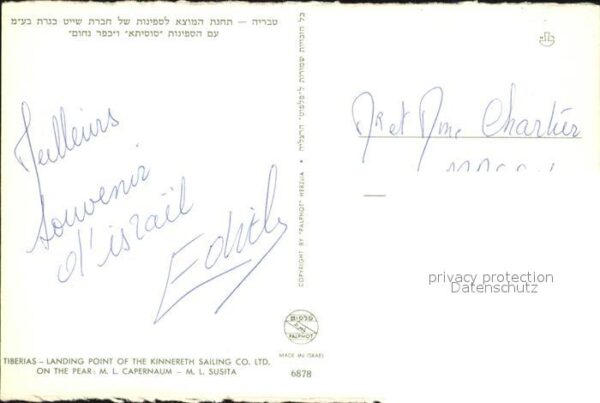 טבריה – תחנת המוצא לספינות של חברת שייט כנרת בע״מ
עם הספינות ״סוסיתא״ ו״כפר נחום״
Meilleurs
Souvenir
d'israël
Edith
TIBERIAS – LANDING POINT OF THE KINNERETH SAILING CO. LTD.
ON THE PEAR: M. L. CAPERNAUM – M. L. SUSITA
כל הזכויות שמורות ל״פלפוט״ הרצליה • COPYRIGHT BY "PALPHOT" HERZLIA
פלפוט
PALPHOT
MADE IN ISRAEL
6878
Mr et Mme Chartier
privacy protection
Datenschutz